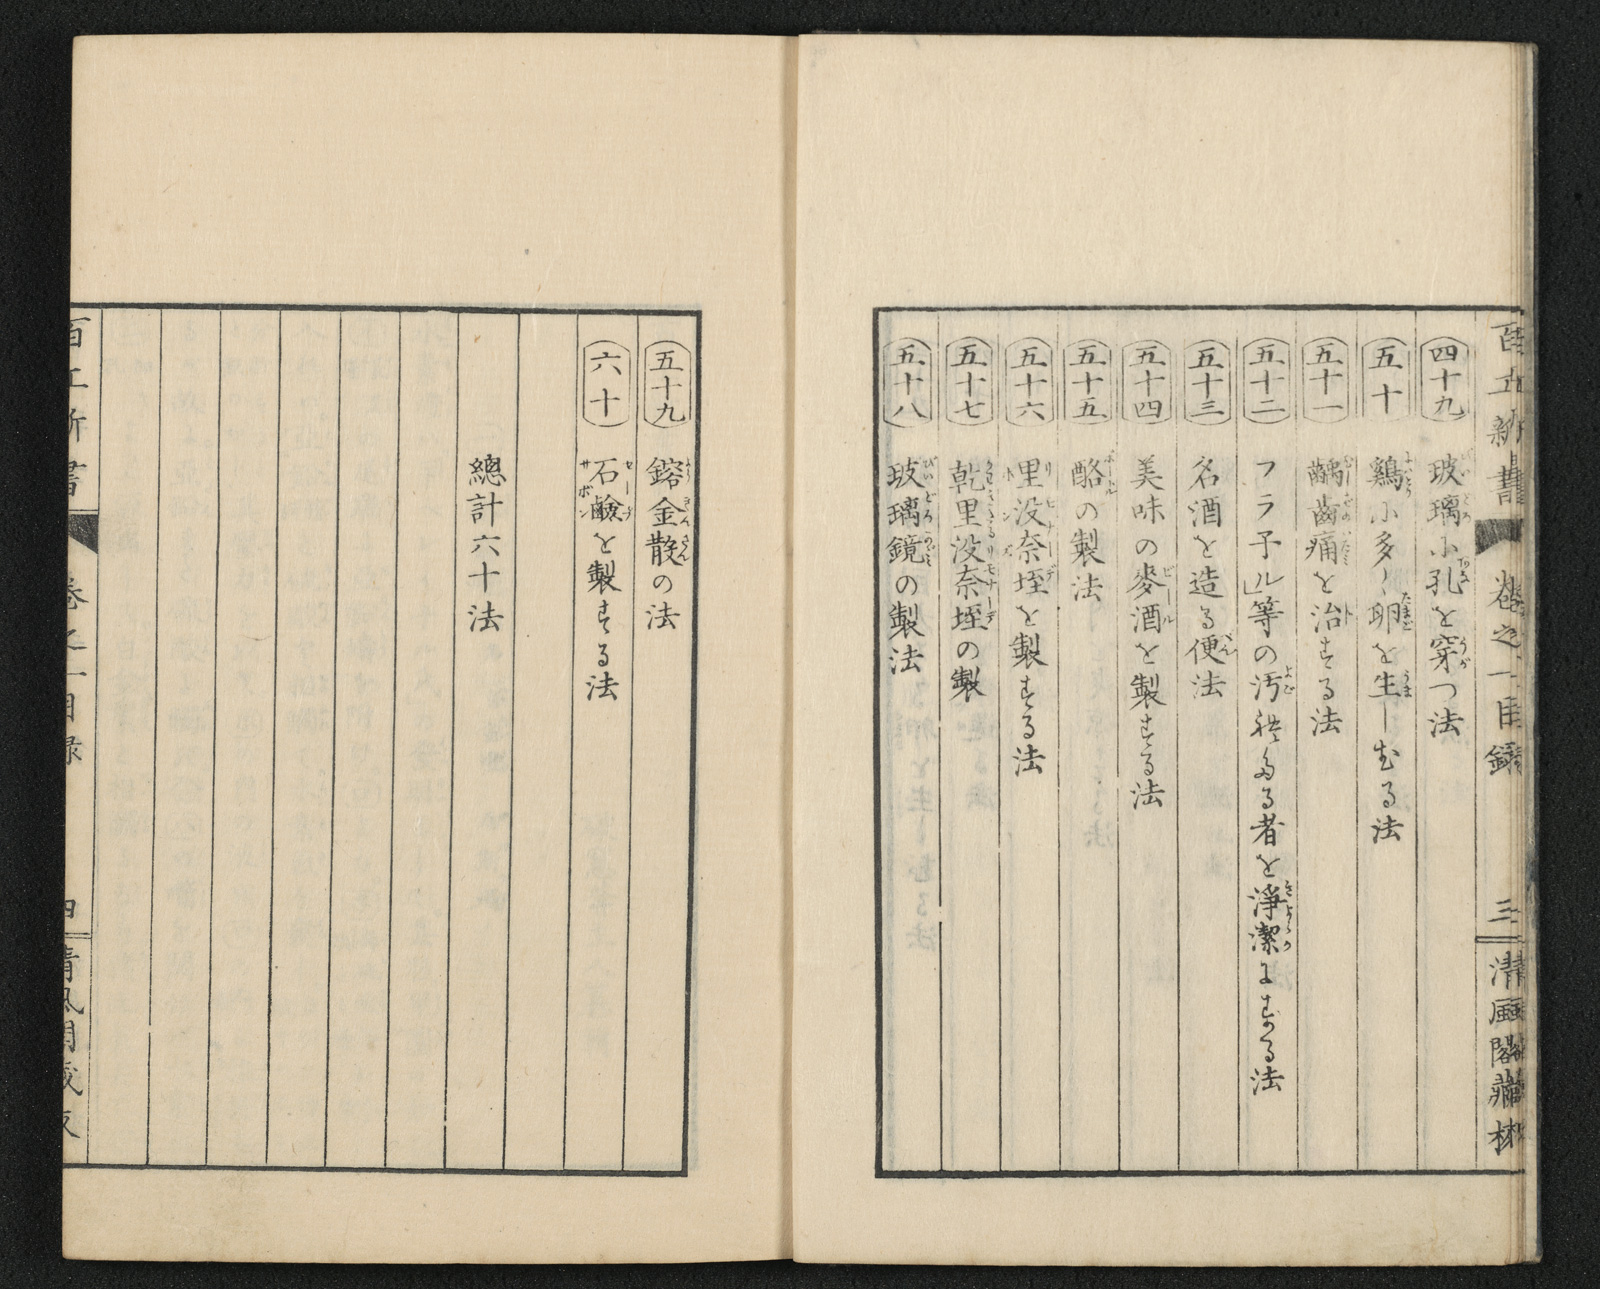 百工新書 巻之一目録 三 清風閣藏板
四十九 玻璃小孔を穿つ法
五十 鷄小多く卵を生しむる法
五十一 齲齒痛を治する法
五十二 フラ子ル等の汚穢たる者を淨潔にする法
五十三 名酒を造る便法
五十四 美味の麥酒を製する法
五十五 酪の製法
五十六 里没奈垤を製する法
五十七 乾里没奈垤の製
五十八 玻璃鏡の製法
五十九 鎔金散の法
六十 石鹸を製する法
總計六十法
百工新書 巻之一目録 四 清風閣藏板